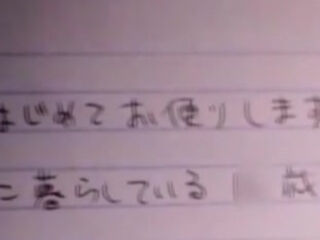 はじめてお便りします
に暮らしている 歳